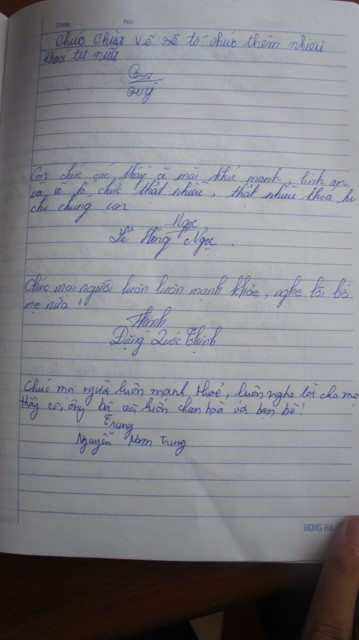 Date : No:
Chúc Chùa Vẽ sẽ tổ chức thêm nhiều
khóa tu nữa
Quý
Con chúc các thầy sẽ mãi khỏe mạnh, bình an
và sẽ tổ chức thật nhiều, thật nhiều khoá tu
cho chúng con
Ngọc
Lê Hồng Ngọc.
Chúc mọi người luôn luôn mạnh khỏe, nghe lời bố
mẹ nữa!
Thịnh
Đặng Quốc Thịnh
Chúc mọi người luôn mạnh khoẻ, luôn nghe lời cha mẹ
thầy cô, ông bà và luôn chan hoà với bạn bè!
Trung
Nguyễn Nam Trung
HONG HA